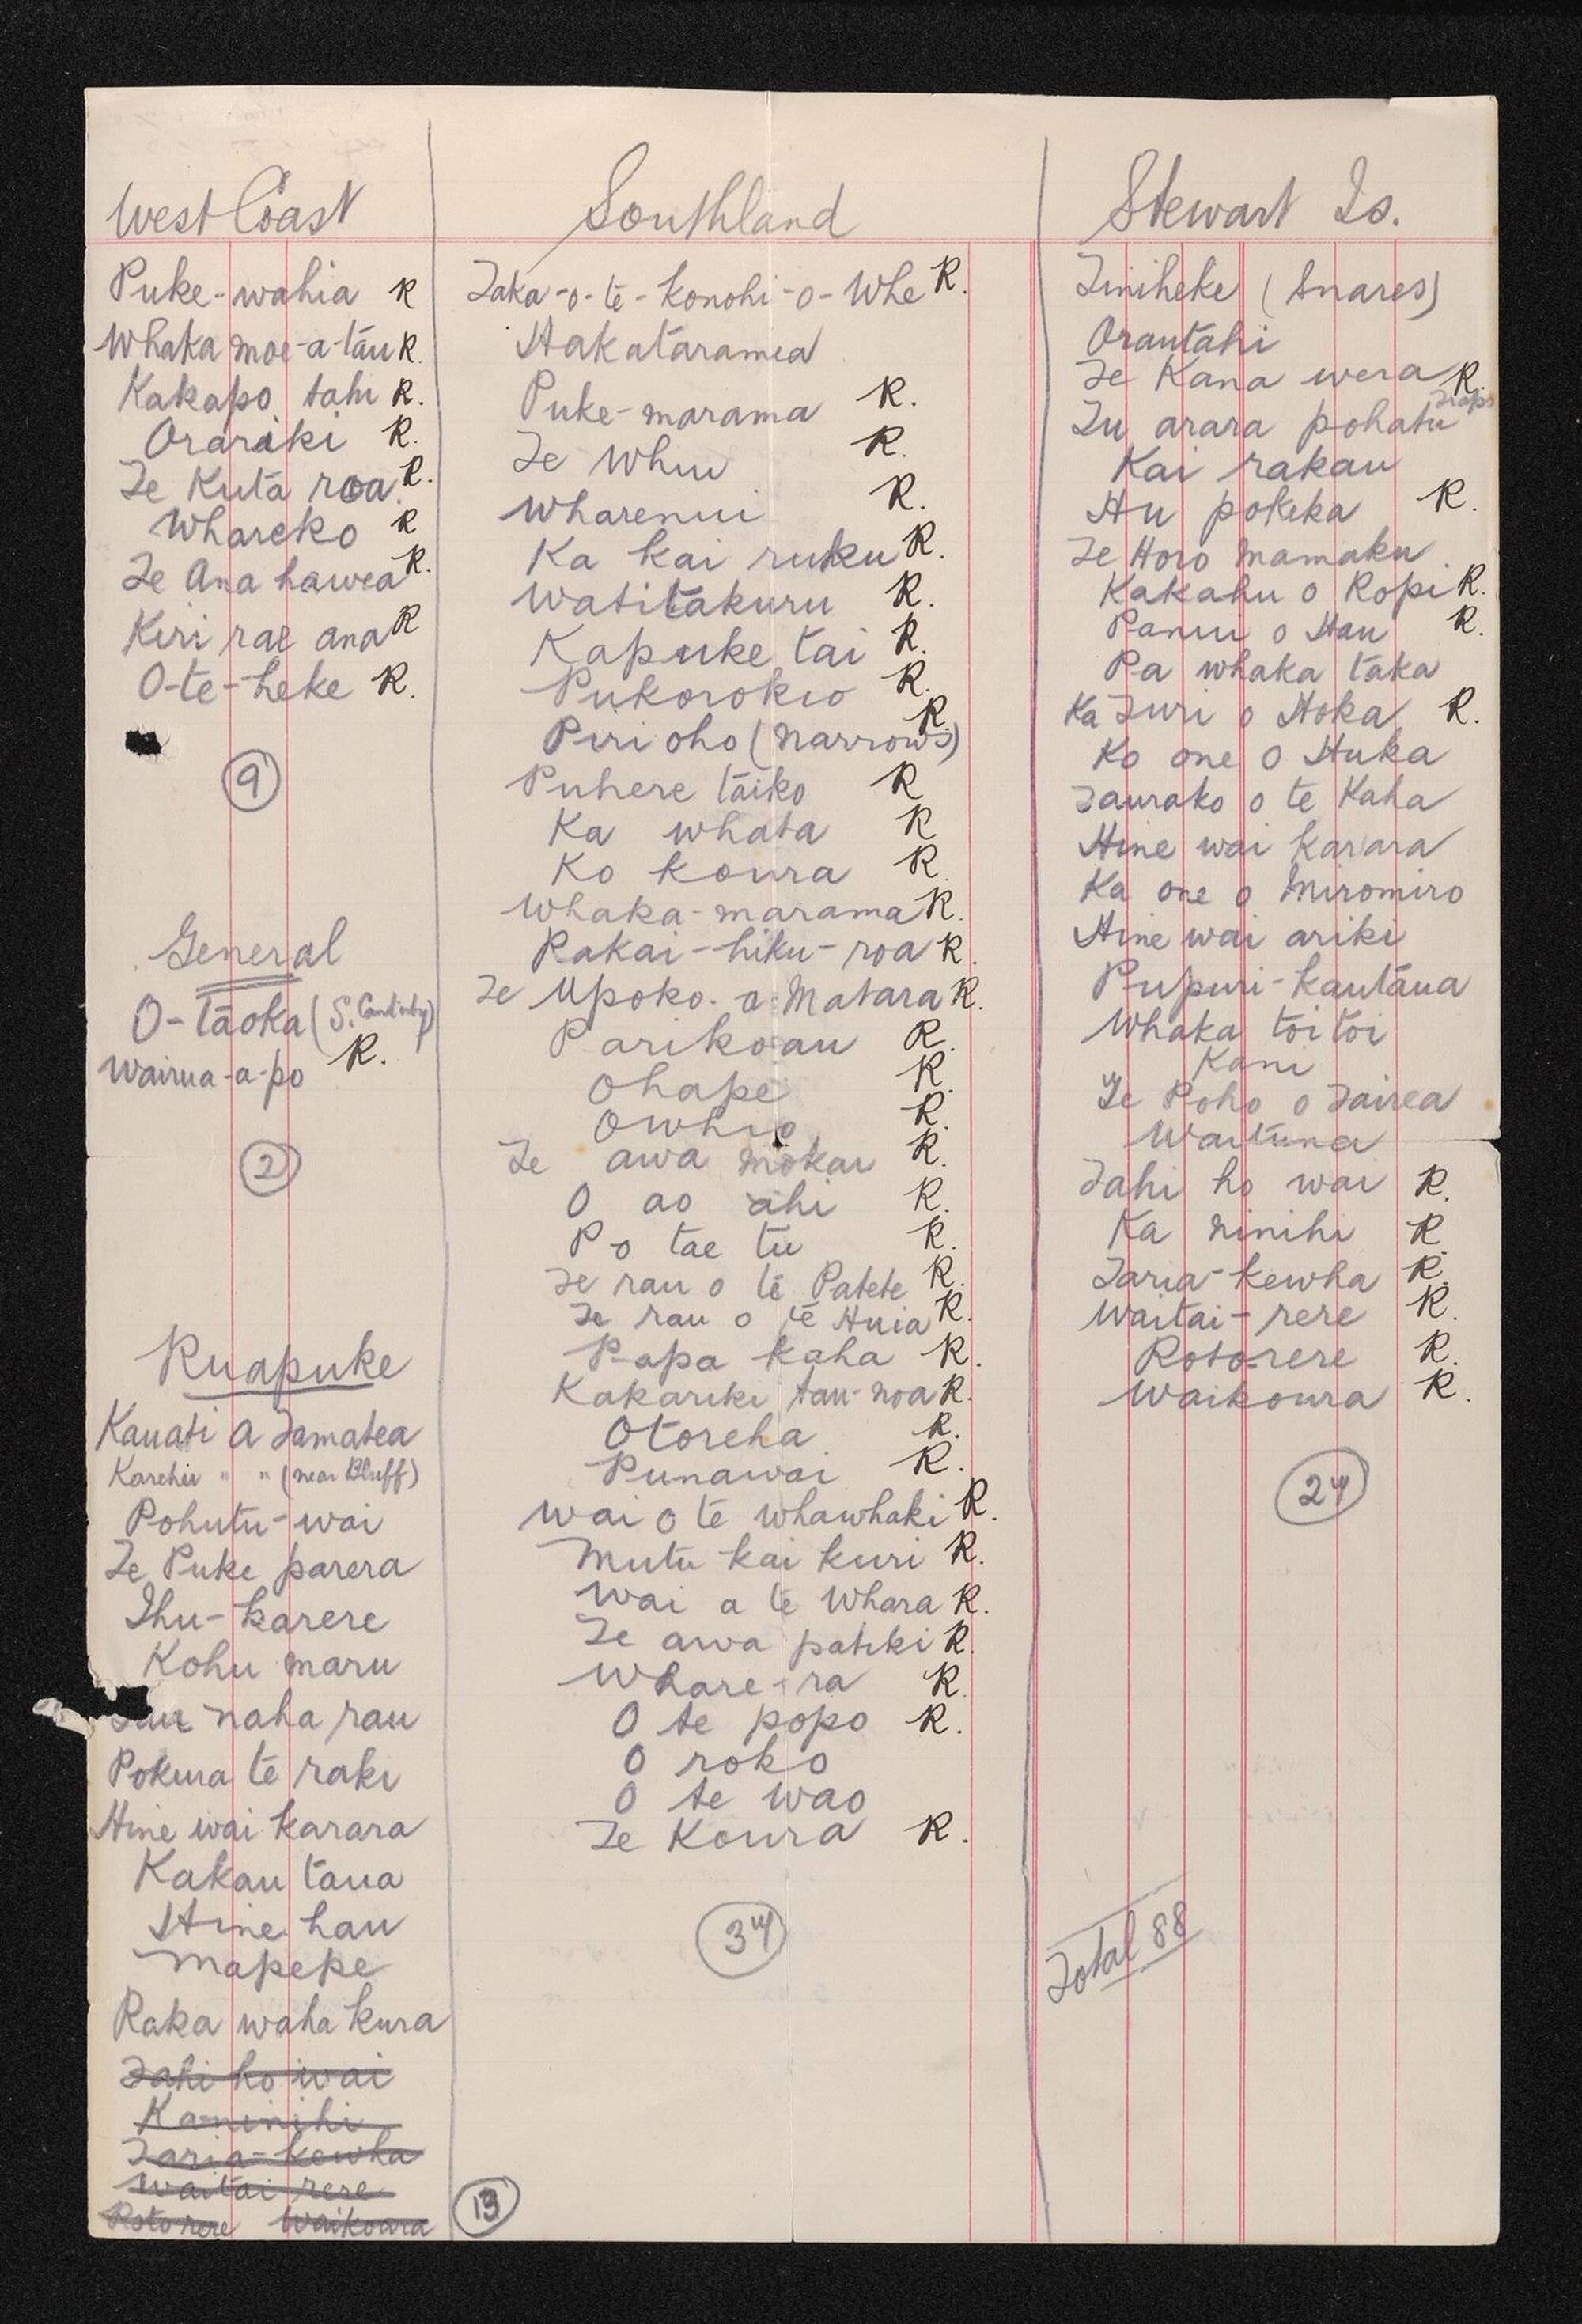 West Coast
Puke-wahia R
Whaka moe-a-tau R.
Kakapo tahi R.
Orariki R.
Te Kuta roa R.
Whareko R
Te Ana hawea R.
Kiri rae ana R
O-te-heke R.
9
General
O-taoka (S. Cantby)
Wairua-a-po R.
2
Ruapuke
Kauati a Tamatea
Karehu " " (near Bluff)
Pohutu-wai
Te Puke parera
Ihu-karere
Kohu maru
naha rau
Pokura te raki
Hine wai karara
Kakau taua
Hine hau
Mapepe
Raka waha kura
Tahi ho wai
Kaninihi
Taria-kewha
Waitai rere
Roto rere Waikoura
13
Southland
Taka-o-te-konohi-o-Whe R.
Hakataramea
Puke-marama R.
Te Whiu R.
Wharenui R.
Ka kai ruku R.
Watitakuru R.
Kapuke tai R.
Pukorokio R.
Piri oho (narrows) R.
Puhere taiko R
Ka whata R
Ko koura R.
Whaka-marama R.
Rakai-hiku-roa R.
Te Upoko-o-Matara R.
Parikoau R.
Ohape R.
Owhio R.
Te awa mokai R.
O ao ahi R.
Po tae tu R.
Te rau o te Patete R.
Te rau o te Huia R.
Papa kaha R.
Kakariki tau-noa R.
Otoreha R.
Punawai R.
Wai o te whawhaki R.
Mutu kai kuri R.
Wai a te Whara R.
Te awa patiki R.
Whare-ra R.
O te popo R.
O roko
O te wao
Te Koura R.
34
Stewart Is.
Tiniheke (Snares)
Orautahi
Te Kana wera R.
Tu arara pohatu Traps
Kai rakau
Hu pokeka R.
Te Horo Mamaku
Kakahu o Ropi R.
Panui o Hau R.
Pa whaka taka
Ka Turi o Hoka R.
Ko one o Huka
Taurako o te Kaha
Hine wai karara
Ka one o Miromiro
Hine wai ariki
Pupuri-kautaua
Whaka toi toi
Kani
Te Poho o Tairea
Waituna
Tahi ho wai R.
Ka ninihi R
Taria-kewha R.
Waitai-rere R.
Roto-rere R.
Waikoura R.
27
Total 88